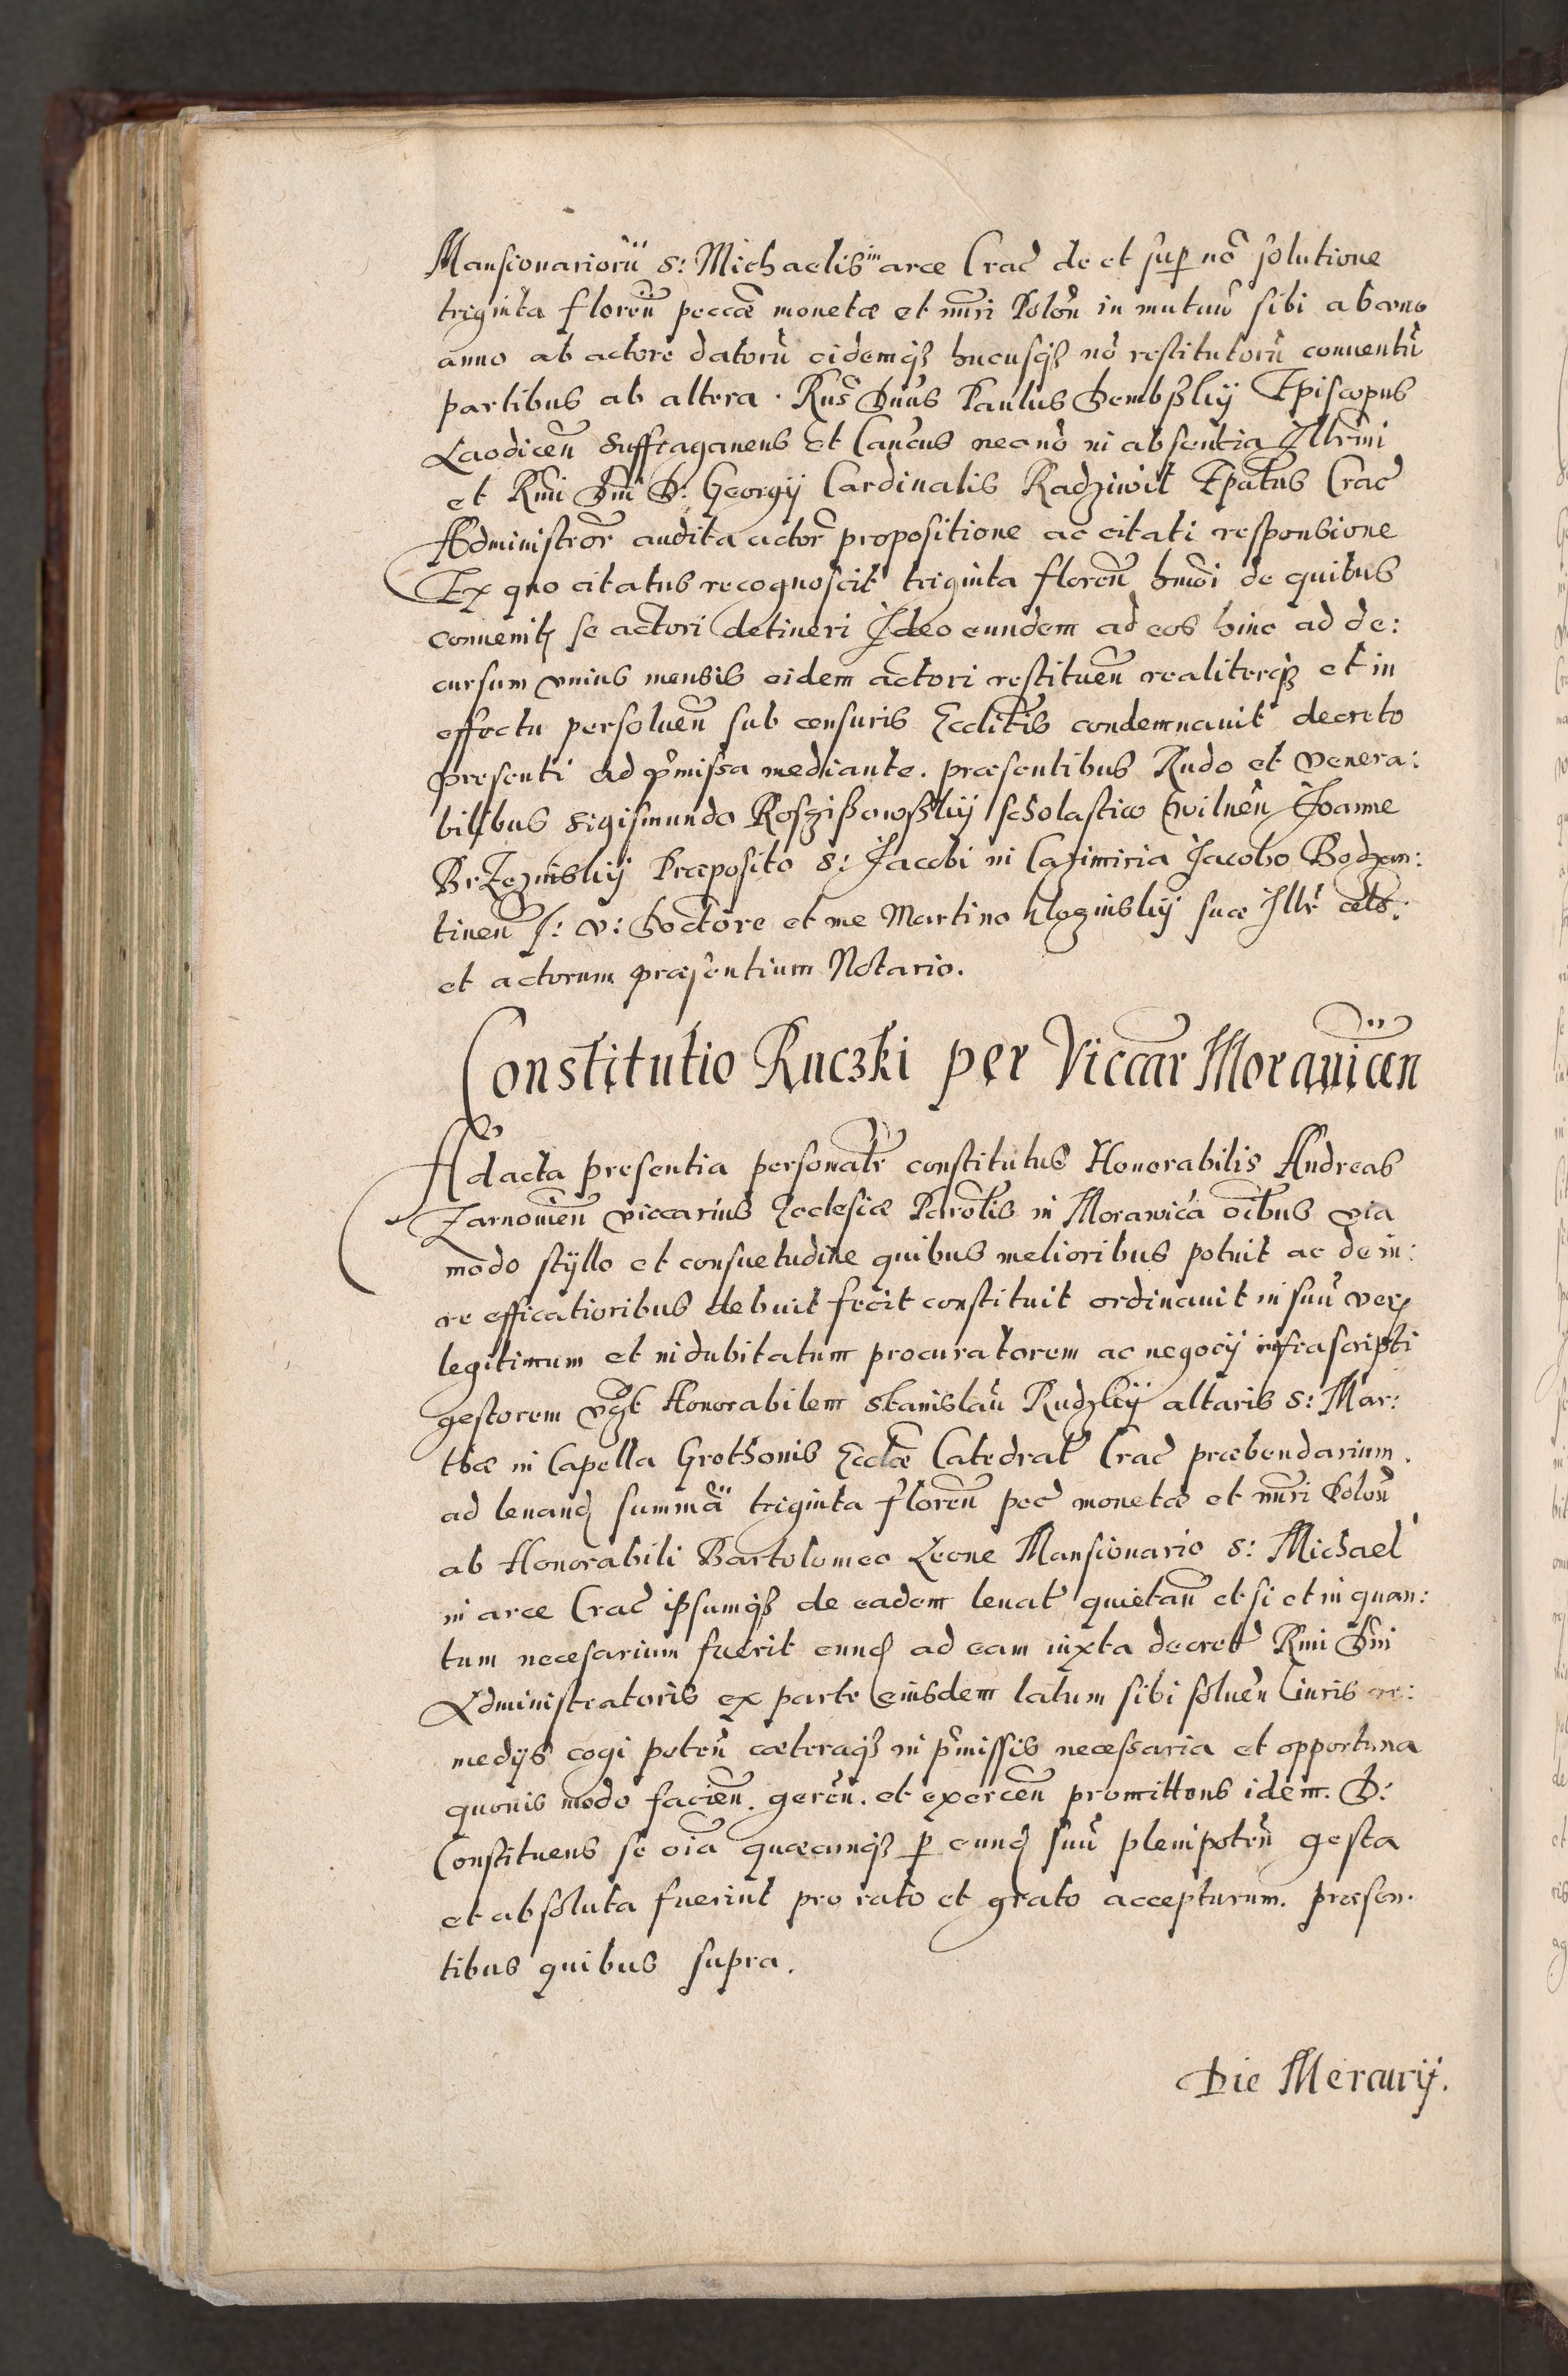 Mansionarioru s: Michaelis in arce Crac de et sup nō solutione
triginta florēn peccae monetae et nrī Polōn in mutuū sibi ab uno
anno ab actore datorū eidemqȝ hucusqȝ nō restitutorū conuentū
partibus ab altera. Rn̄s Dn̄us Paulus Dembsky Episcopus
Laodicēn Suffraganeus et Cancūs nec nō in absentia Illrmi
et Rmi Dn̄i D: Georgij Cardinalis Radziwil Epatus Crac
Administrōr audita actor propositione ac citati responsione
Ex quo citatus recognoscit triginta florēn hm̄oi de quibus
conuenitr se actori detineri Ideo eundem ad eos hinc ad de:
cursum vnius mensis eidem actori restituēn realiterqȝ et in
effectu persoluēn sub censuris Ecclītis condemnauit decreto
presenti ad p̄missa mediante. praesentibus Rndo et venera:
bilibus Sigismundo Roszißowßkij scholastico Vilnēn Joanne
Brzezinskij Praeposito S: Jacobi in Casimiria Jacobo Bodzen:
tinēn J: V: Doctore et me Martino Kłoginskij suae Illr̄ Cels:
et actorum praesentium Notario.
Constitutio Ruczki per Viccār Morauicēn
Ad acta presentia personatr constitutus Honorabilis Andreas
Zarnouiēn viccarius Ecclesiae Parotlis in Morawica oibus via
modo styllo et consuetudine quibus melioribus potuit ac de iu:
re efficatioribus debuit fecit constituit ordinauit in suū verū
legitimum et indubitatum procuratorem ac negocij infrascripti
gestorem vȝt Honorabilem Stanislaū Rudzkij altaris S: Mar:
thae in Capella Grothonis Ecclae Catedral Crac praebendarium.
ad leuand summā triginta florēn pec monetae et nrī Polōn
ab Honorabili Bartolomeo Leone Mansionario S: Michael
in arce Crac ipsumqȝ de eadem leuat quietān et si et in quan:
tum necesarium fuerit eund ad eam iuxta decret Rmi Dn̄i
Administratoris ex parte eiusdem latum sibi soluēn iuris re:
medijs cogi petēn caeteraqȝ in p̄missis necessaria et opportuna
quouis modo faciēn. gerēn. et exercēn promittens idem. D:
Constituens se oīa quaecunqȝ p eund suū plenipotēn gesta
et absoluta fuerint pro rato et grato accepturum. praesen.
tibus quibus supra.
Die Mercurij.